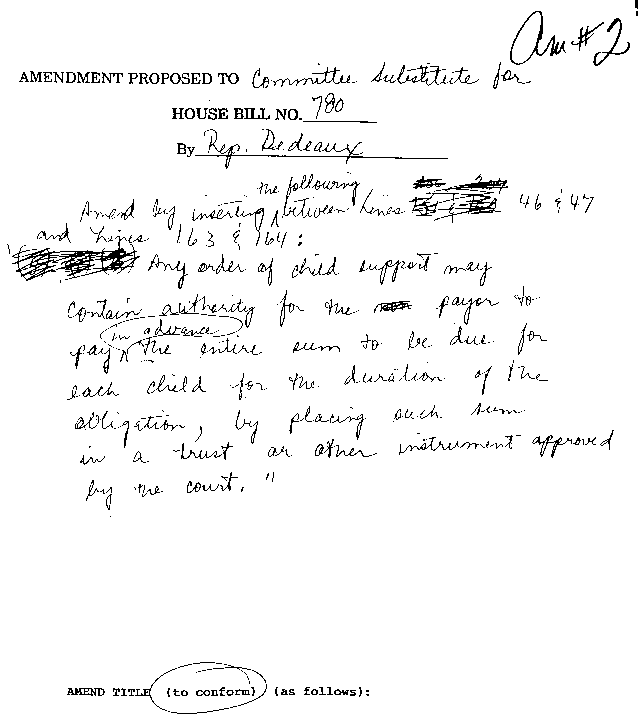 Am #2
AMENDMENT PROPOSED TO Committee Substitute for
HOUSE BILL NO. 780
By Rep. Dedeaux
Amend by inserting the following between Lines 46 & 47
and Lines 163 & 164:
Any order of child support may
contain authority for the payor to
pay in advance the entire sum to be due for
each child for the duration of the
obligation, by placing such sum
in a trust or other instrument approved
by the court."
AMEND TITLE (to conform) (as follows):